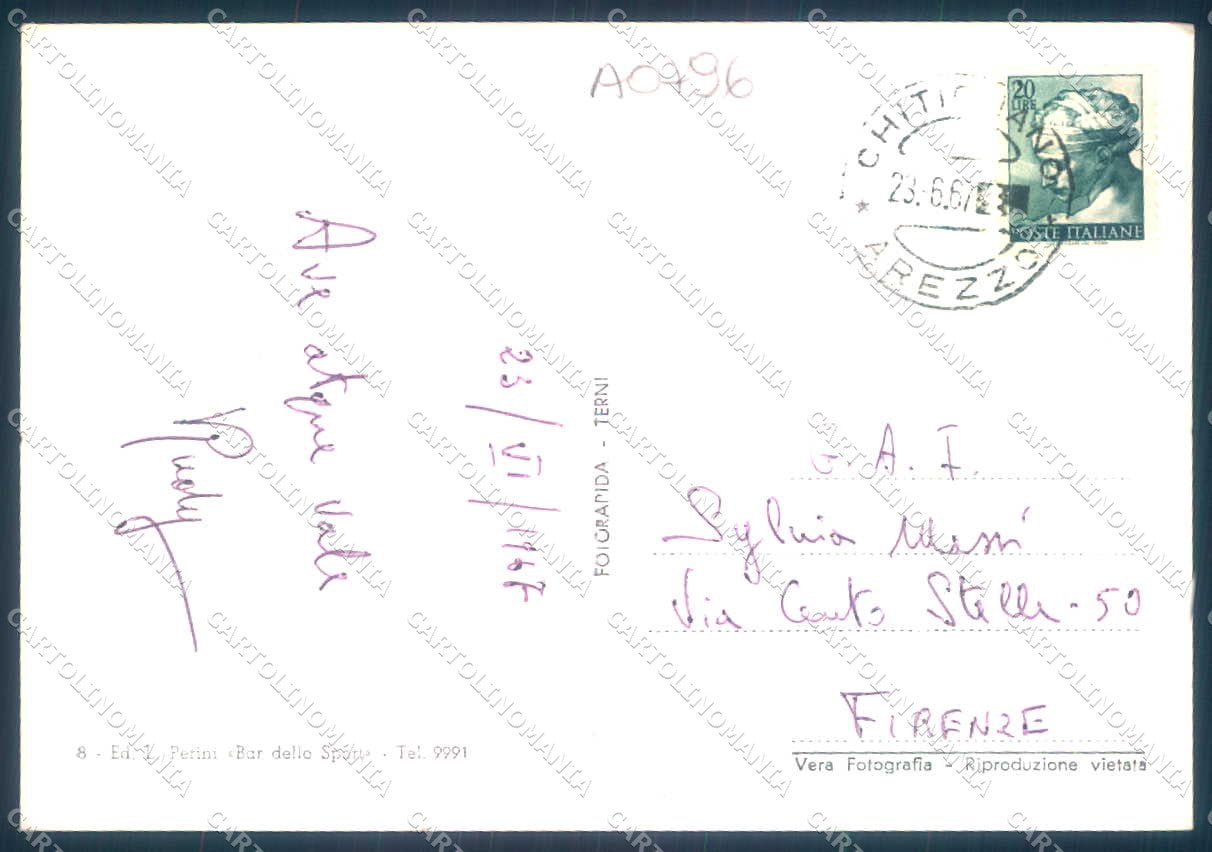 A0796
CHITIGNANO
23.6.67
* AREZZO *
20
LIRE
POSTE ITALIANE
Ave atque Vale
Rudy
23/VI/1967
FOTORAPIDA - TERNI
G. A. F.
Sylvia Massi
Via Cento Stelle - 50
FIRENZE
8 - Ed. L. Perini «Bar dello Sport» - Tel. 9991
Vera Fotografia - Riproduzione vietata
CARTOLINOMANIA